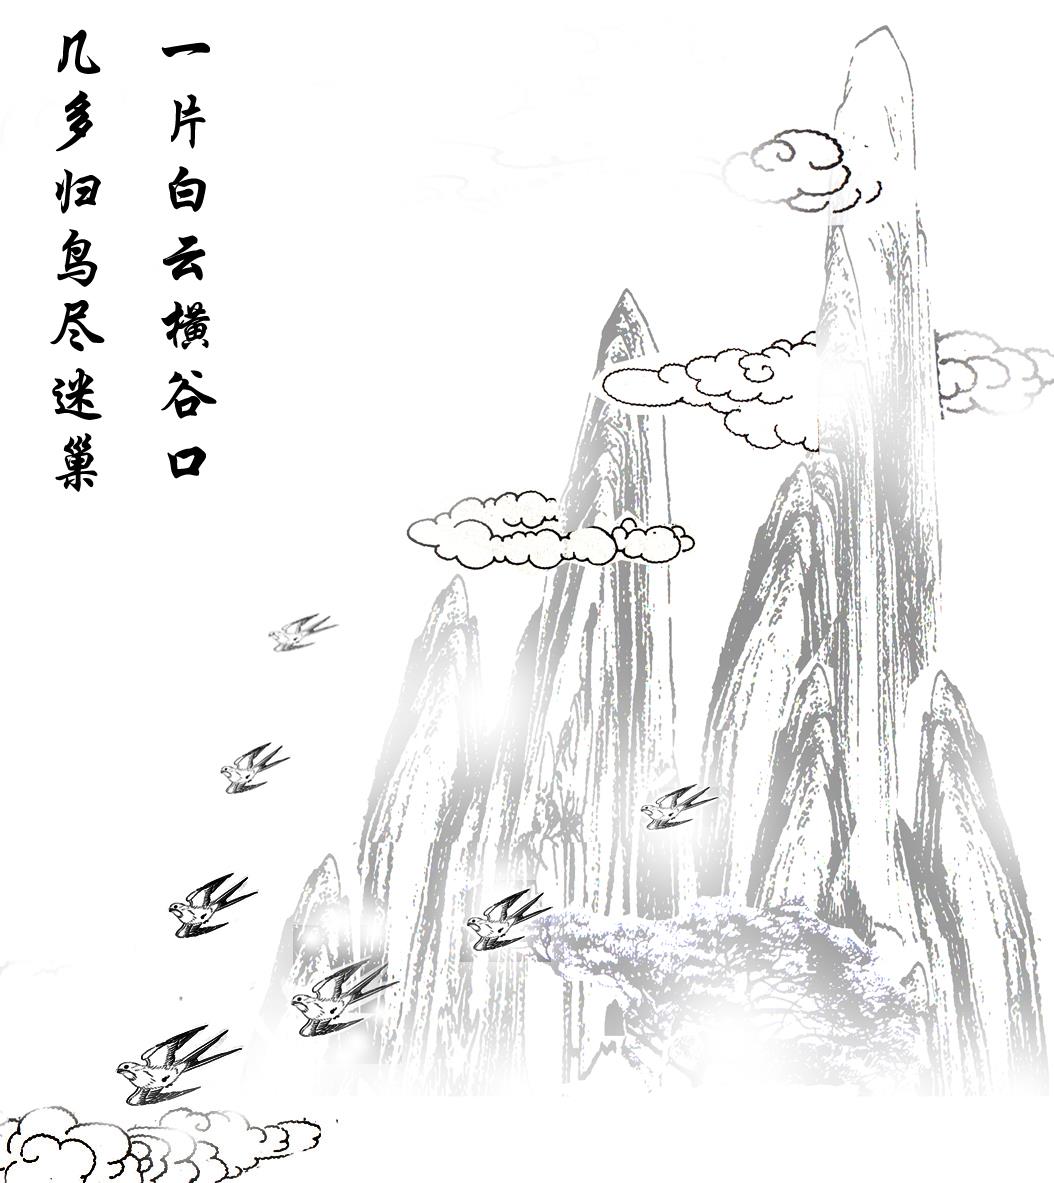 一片白云橫谷口
几多归鸟尽迷巢